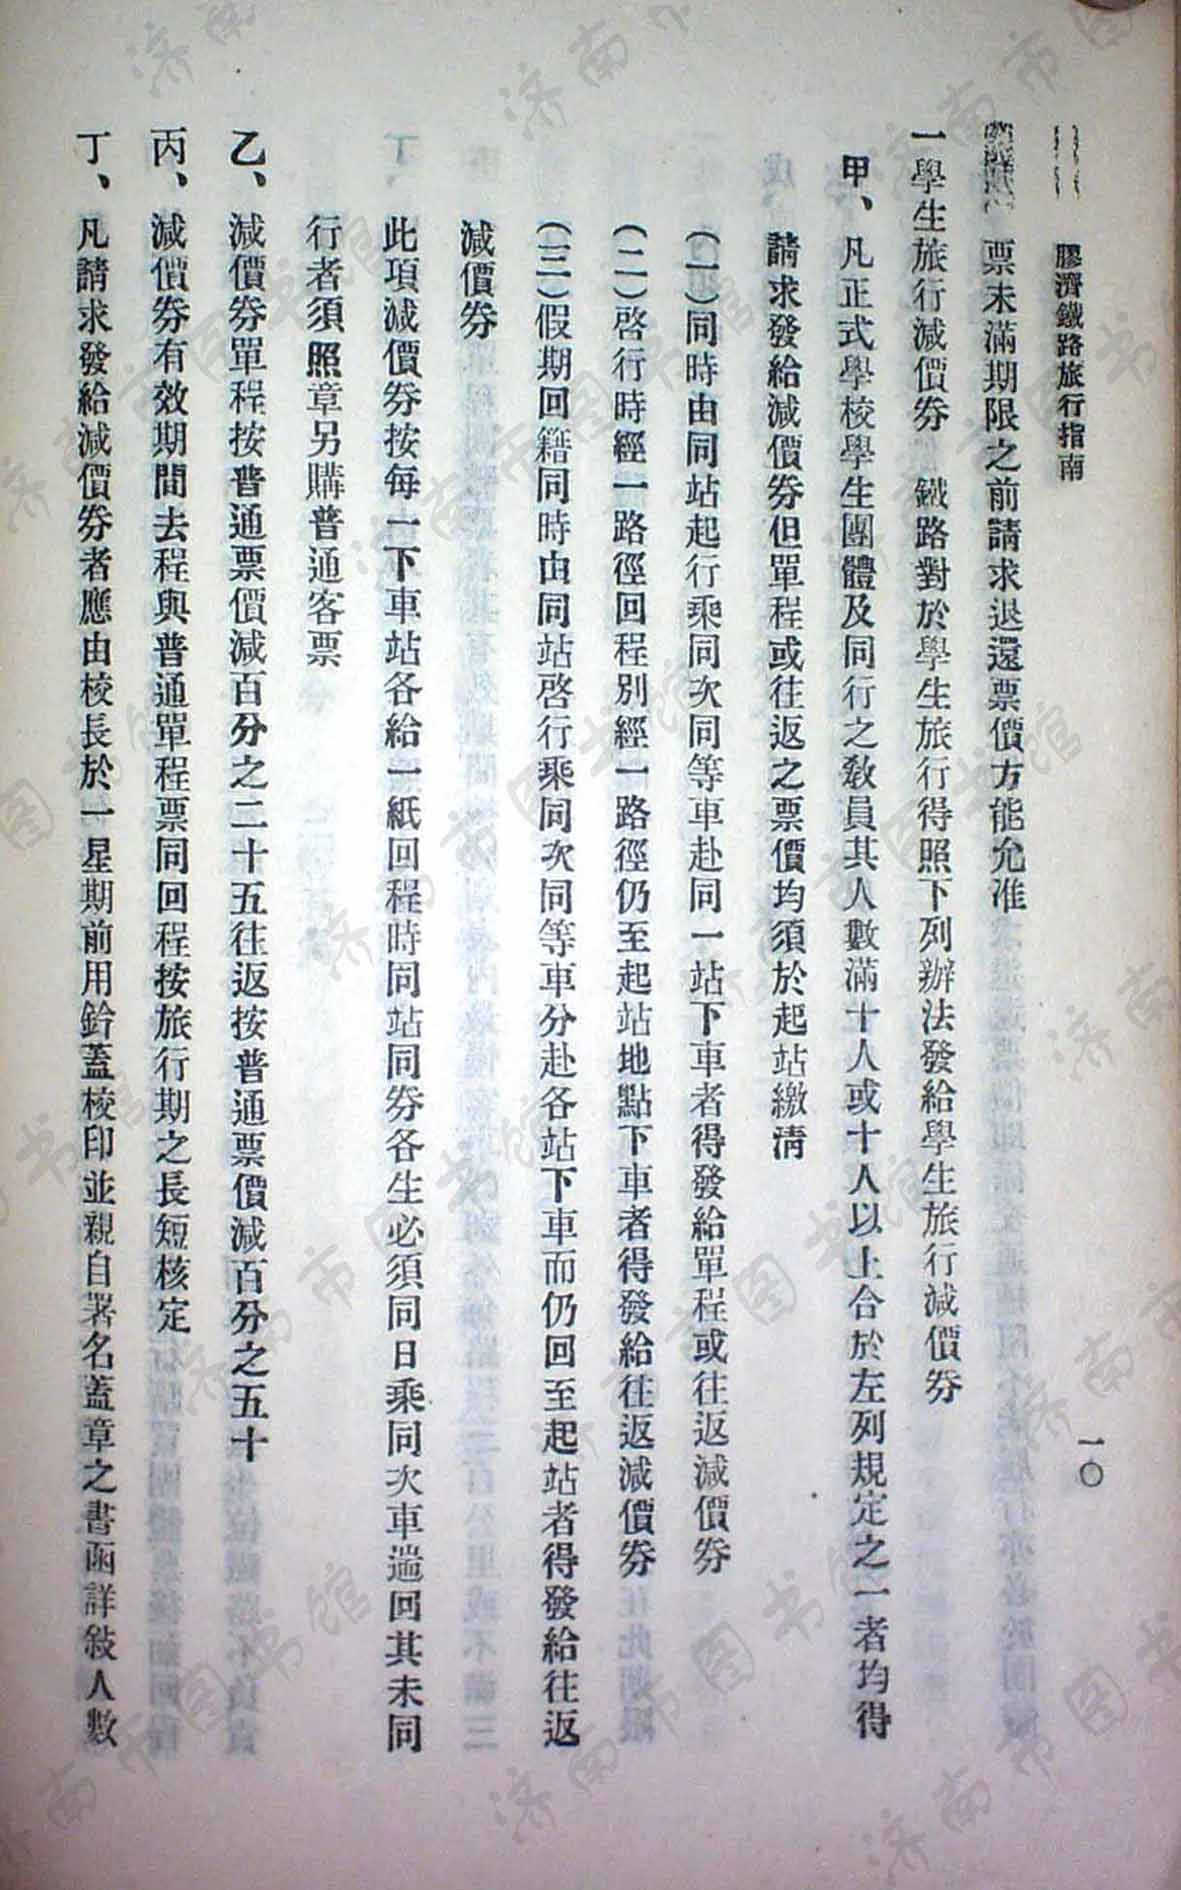 膠濟鐵路旅行指南
一〇
票未滿期限之前請求退還票價方能允准
一學生旅行減價券　鐵路對於學生旅行得照下列辦法發給學生旅行減價券
甲、凡正式學校學生團體及同行之教員其人數滿十人或十人以上合於左列規定之一者均得
請求發給減價券但單程或往返之票價均須於起站繳清
(一)同時由同站起行乘同次同等車赴同一站下車者得發給單程或往返減價券
(二)啓行時經一路徑回程別經一路徑仍至起站地點下車者得發給往返減價券
(三)假期回籍同時由同站啓行乘同次同等車分赴各站下車而仍回至起站者得發給往返
減價券
此項減價券按每一下車站各給一紙回程時同站同券各生必須同日乘同次車遄回其未同
行者須照章另購普通客票
乙、減價券單程按普通票價減百分之二十五往返按普通票價減百分之五十
丙、減價券有效期間去程與普通單程票同回程按旅行期之長短核定
丁、凡請求發給減價券者應由校長於一星期前用鈐蓋校印並親自署名蓋章之書函詳敍人數
济南市图书馆